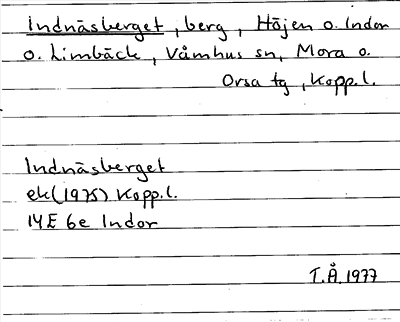 Indnäsberget, berg, Höjen o. Indor
o. Limbäck, Våmhus sn, Mora o.
Orsa tg, Kopp.l.
Indnäsberget
ek (1975) Kopp.l.
14E 6e Indor
T.Å. 1977